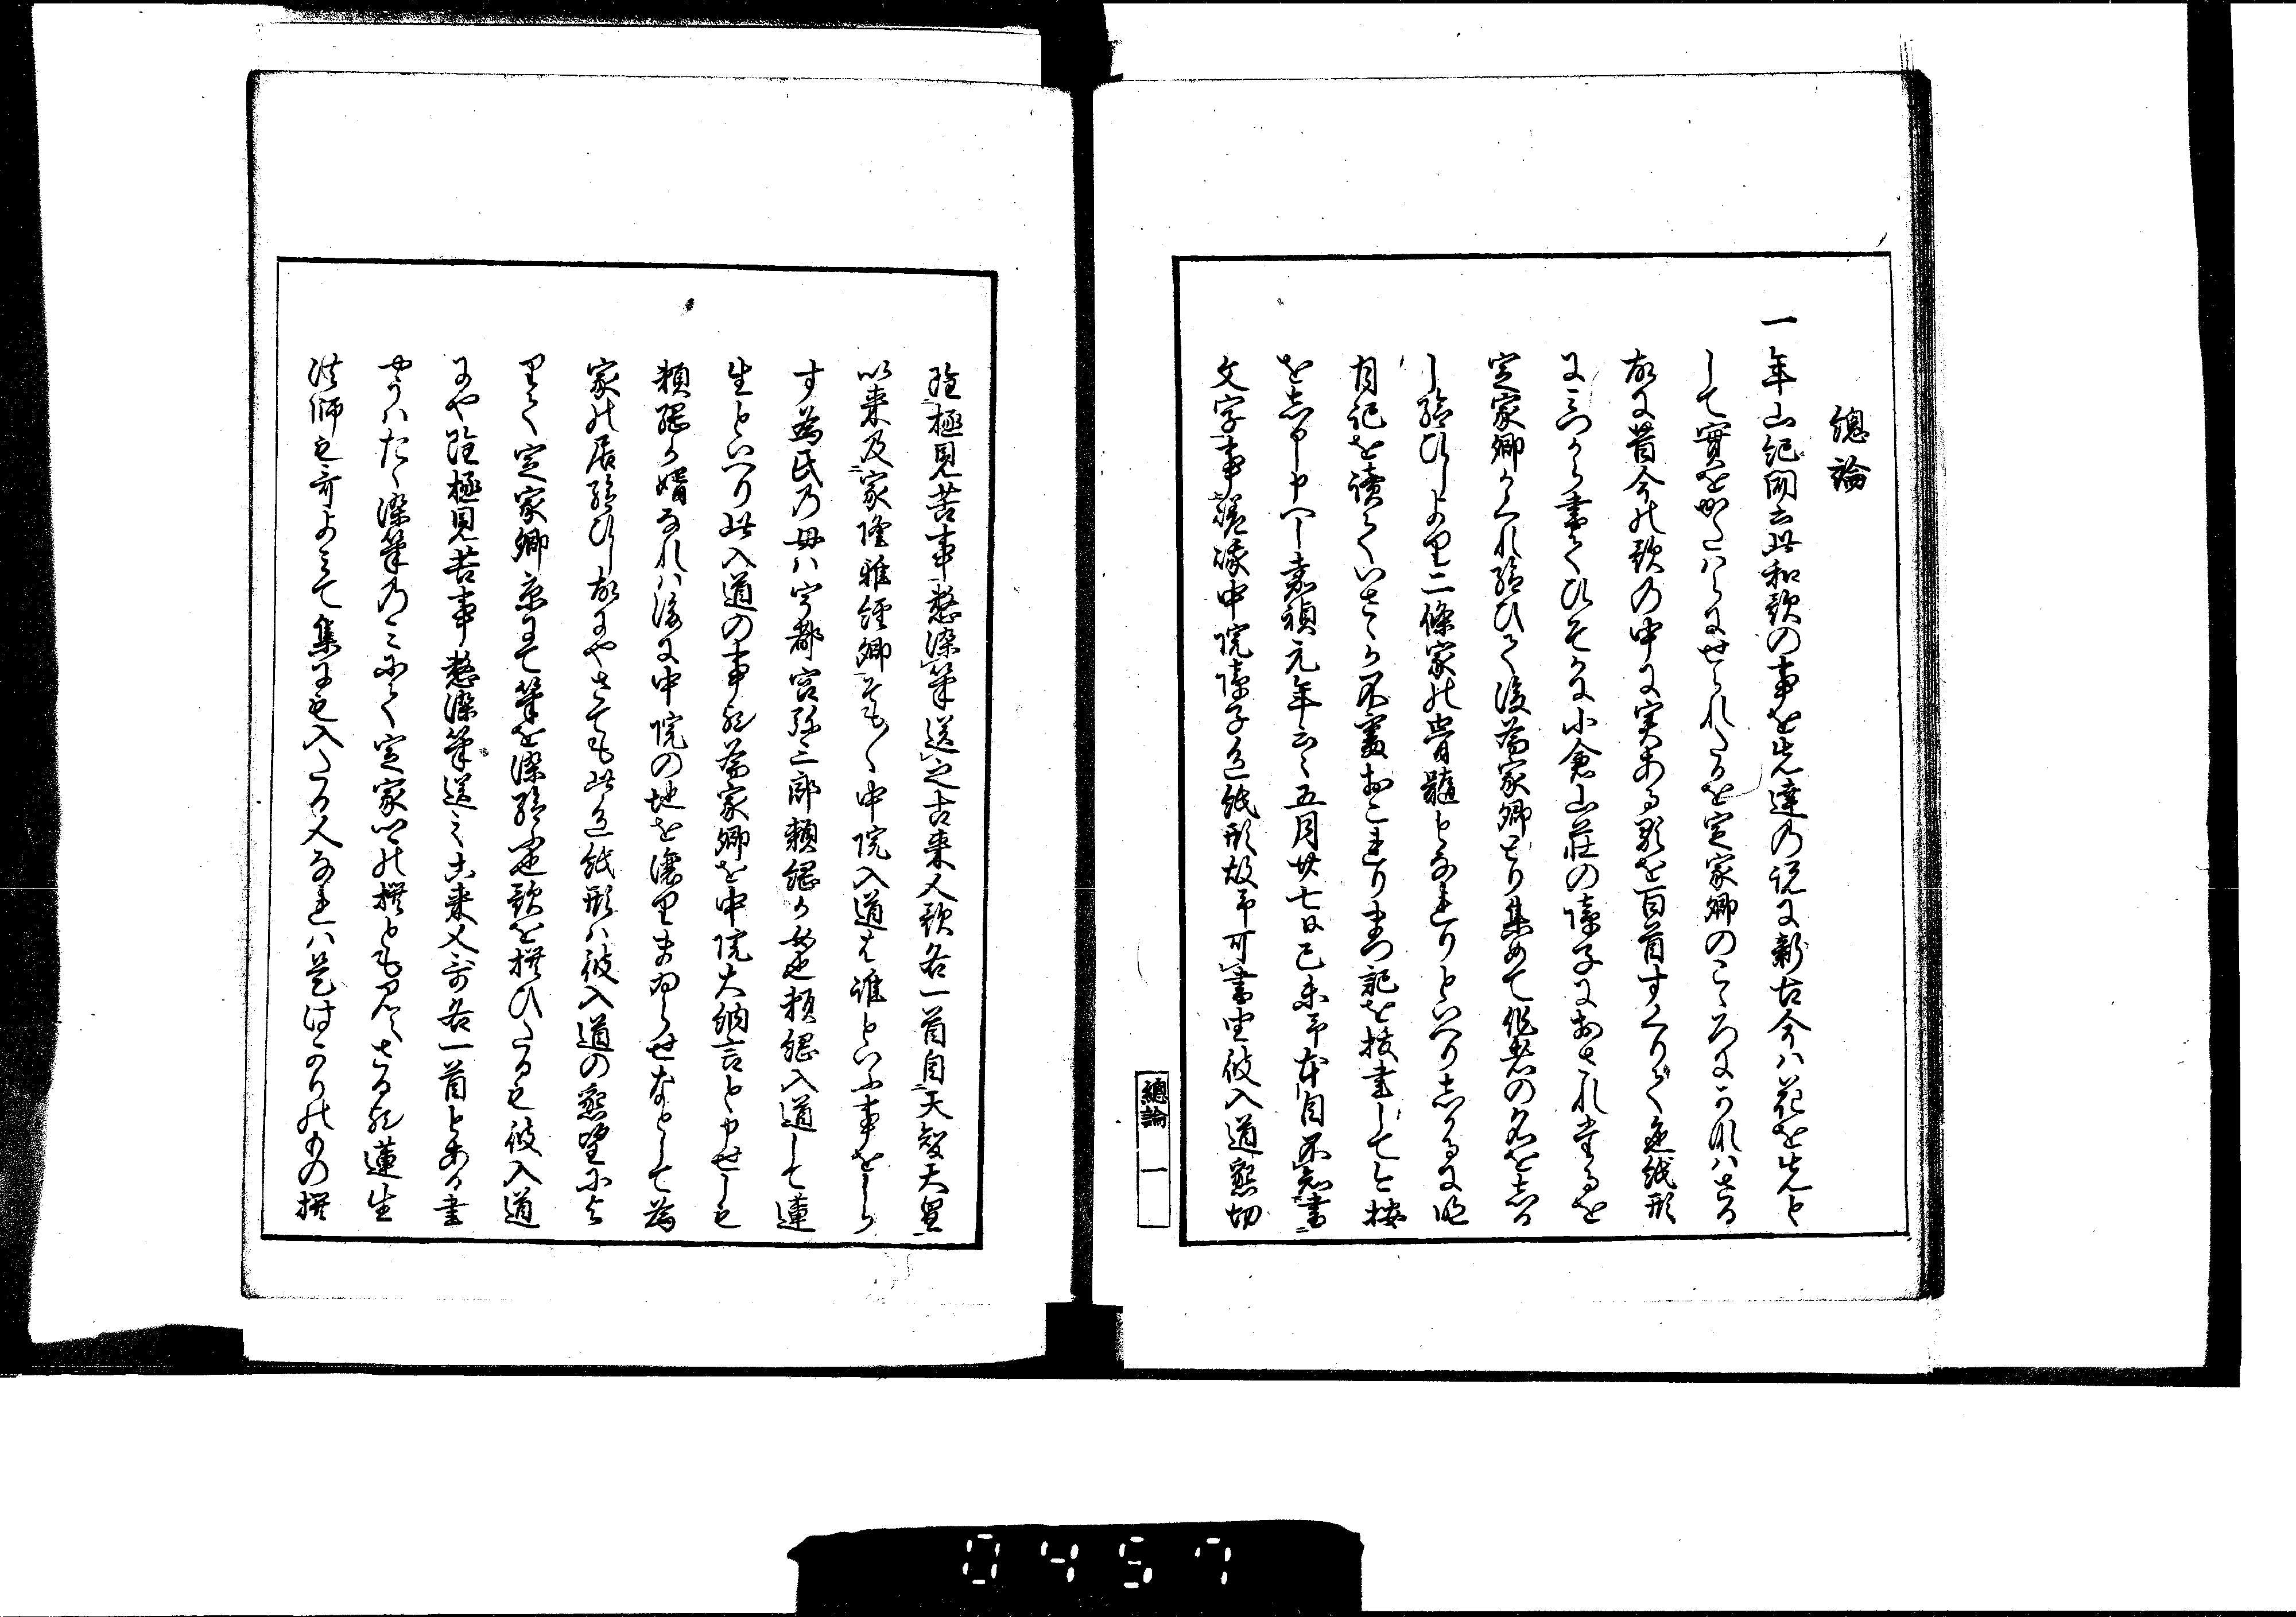 總論
一年山紀聞云此和歌の事を先達乃説に新古今ハ花を先と
して實をかたハらにせられたるを定家卿のこゝろにかなハさる
故に昔今の歌の中に実ある歌を百首すくりて色紙形
にみつから書てひそかに小倉山荘の障子におされたるを
定家卿かくれ給ひて後為家卿とり集めて作者の名をしる
し給ひしより二條家の骨髓となれりといへりしかるに明
月記を讀ていさゝか不審おこれりまつ記を抜書して今按
をしるし申へし嘉禎元年云々五月廿七日己未予本自不知書
文字事嵯峨中院障子色紙形故予可書由彼入道懇切
雖極見苦事愁染筆送之古来人歌各一首自天智天皇
以来及家隆雅經卿そも〳〵中院入道は誰といふ事をしら
す為氏乃母ハ宇都宮弥三郎頼綱か女也頼綱入道して蓮
生といへり此入道の事歟為家卿を中院大納言と申せしも
頼綱か婿なれハ後に中院の地を譲りまゐらせなとして為
家の居給ひし故にやさても此色紙形ハ彼入道の懇望によ
りて定家卿京にて筆を染給ふ也歌を撰ひたるも彼入道
にや雖極見苦事愁染筆送之古来人哥各一首とある書
やうハたゝ染筆乃ミにて定家卿の撰とも見えさる歟蓮生
法師も哥よミて集にも入たる人なれハ是はかりのもの撰
總論 一
0457